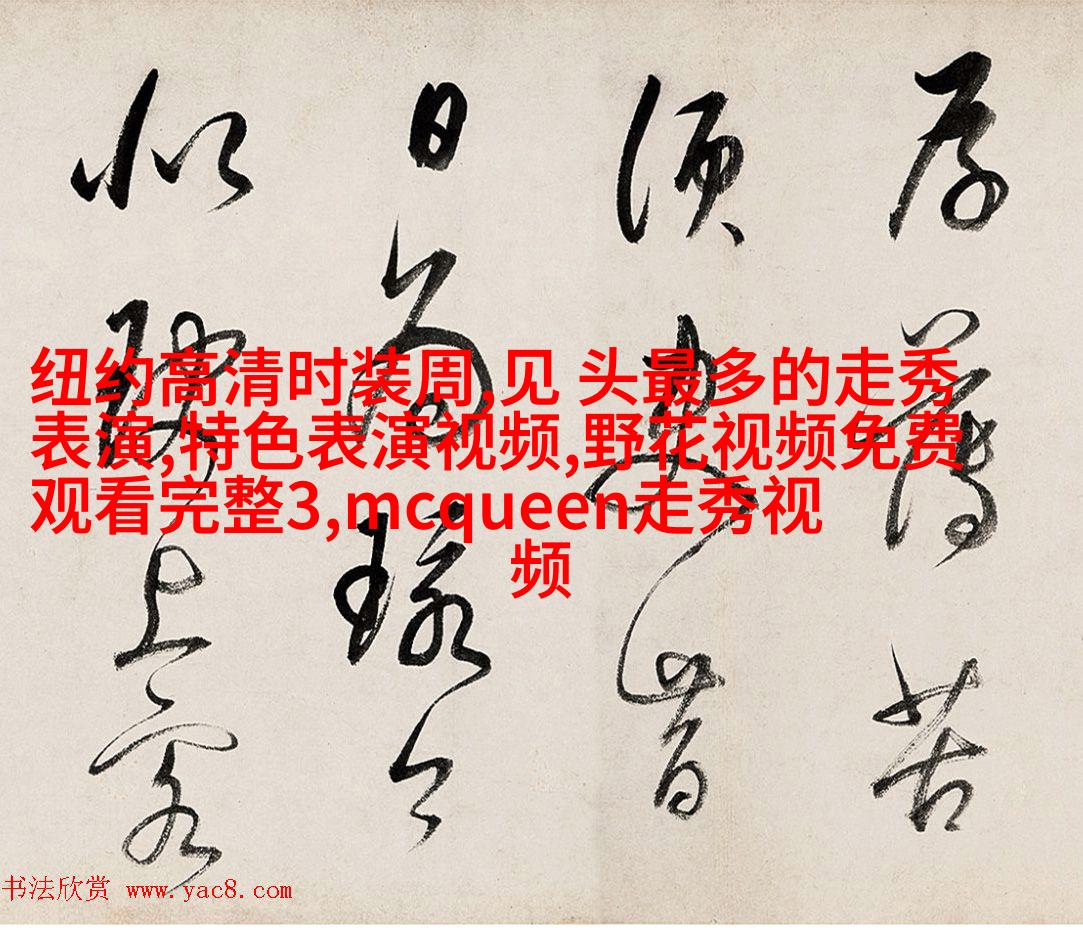 纽约高清时装周,见 头最多的走秀
表演,特色表演视频,野花视频免费
观看完整3,mcqueen走秀视
频
薄苦
須
日
似上客
书法欣赏 www.yac8.com